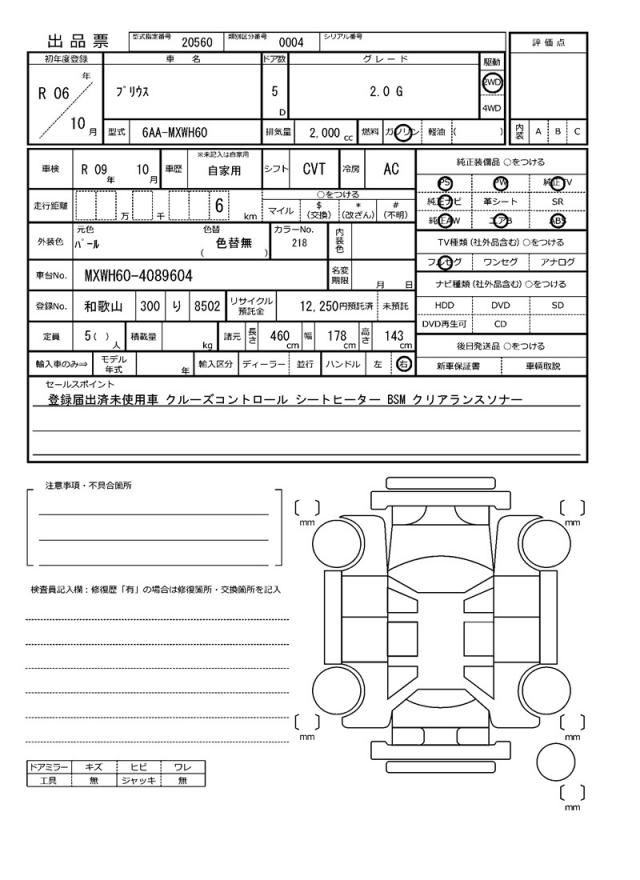 出品票 型式指定番号 20560 類別区分番号 0004 シリアル番号
評価点
初年度登録 車名 ドア数 グレード 駆動
R 06 年 10 月 プリウス 5 D 2.0 G 2WD 4WD
型式 6AA-MXWH60 排気量 2,000 cc 燃料 ガソリン 軽油 ( )
内装 A B C
車検 R 09 年 10 月 車歴 ※未記入は自家用 自家用 シフト CVT 冷房 AC
走行距離 万 千 6 km
○をつける
マイル $ (交換) * (改ざん) # (不明)
外装色 元色 パール 色替 色替無 ( ) カラーNo. 218 内装色
車台No. MXWH60-4089604 名変期限 月 日
登録No. 和歌山 300 り 8502 リサイクル預託金 12,250円預託済 未預託
定員 5 ( ) 人 積載量 kg 諸元 長さ 460 cm 幅 178 cm 高さ 143 cm
輸入車のみ⇒ モデル年式 年 輸入区分 ディーラー 並行 ハンドル 左 右
純正装備品 ○をつける
PS PW 純正TV
純正ナビ 革シート SR
純正AW エアB ABS
TV種類 (社外品含む) ○をつける
フルセグ ワンセグ アナログ
ナビ種類 (社外品含む) ○をつける
HDD DVD SD
DVD再生可 CD
後日発送品 ○をつける
新車保証書 車輌取説
セールスポイント
登録届出済未使用車 クルーズコントロール シートヒーター BSM クリアランスソナー
注意事項・不具合箇所
検査員記入欄：修復歴「有」の場合は修復箇所・交換箇所を記入
mm
mm
mm
mm
mm
ドアミラー キズ ヒビ ワレ
工具 無 ジャッキ 無